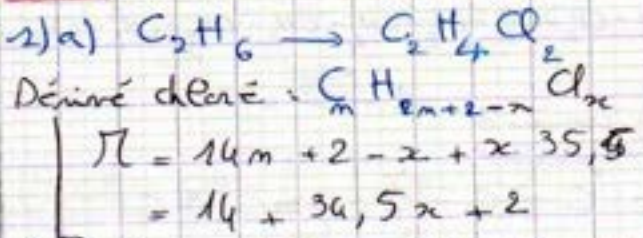 1)a) C₂H₆ → C₂H₄Cl₂
Dérivé chloré : CₙH₂ₙ₊₂₋ₓClₓ
M = 14n + 2 - x + x 35,5
= 14 + 34,5x + 2